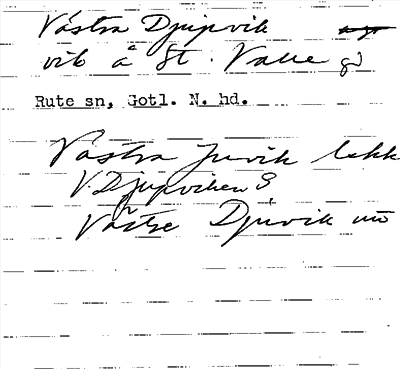 Västra Djupvik
vik å St. Valle gd
Rute sn, Gotl. N. hd.
Västra Juvik lekk
V. Djupviken S
Västre Djuvik uo